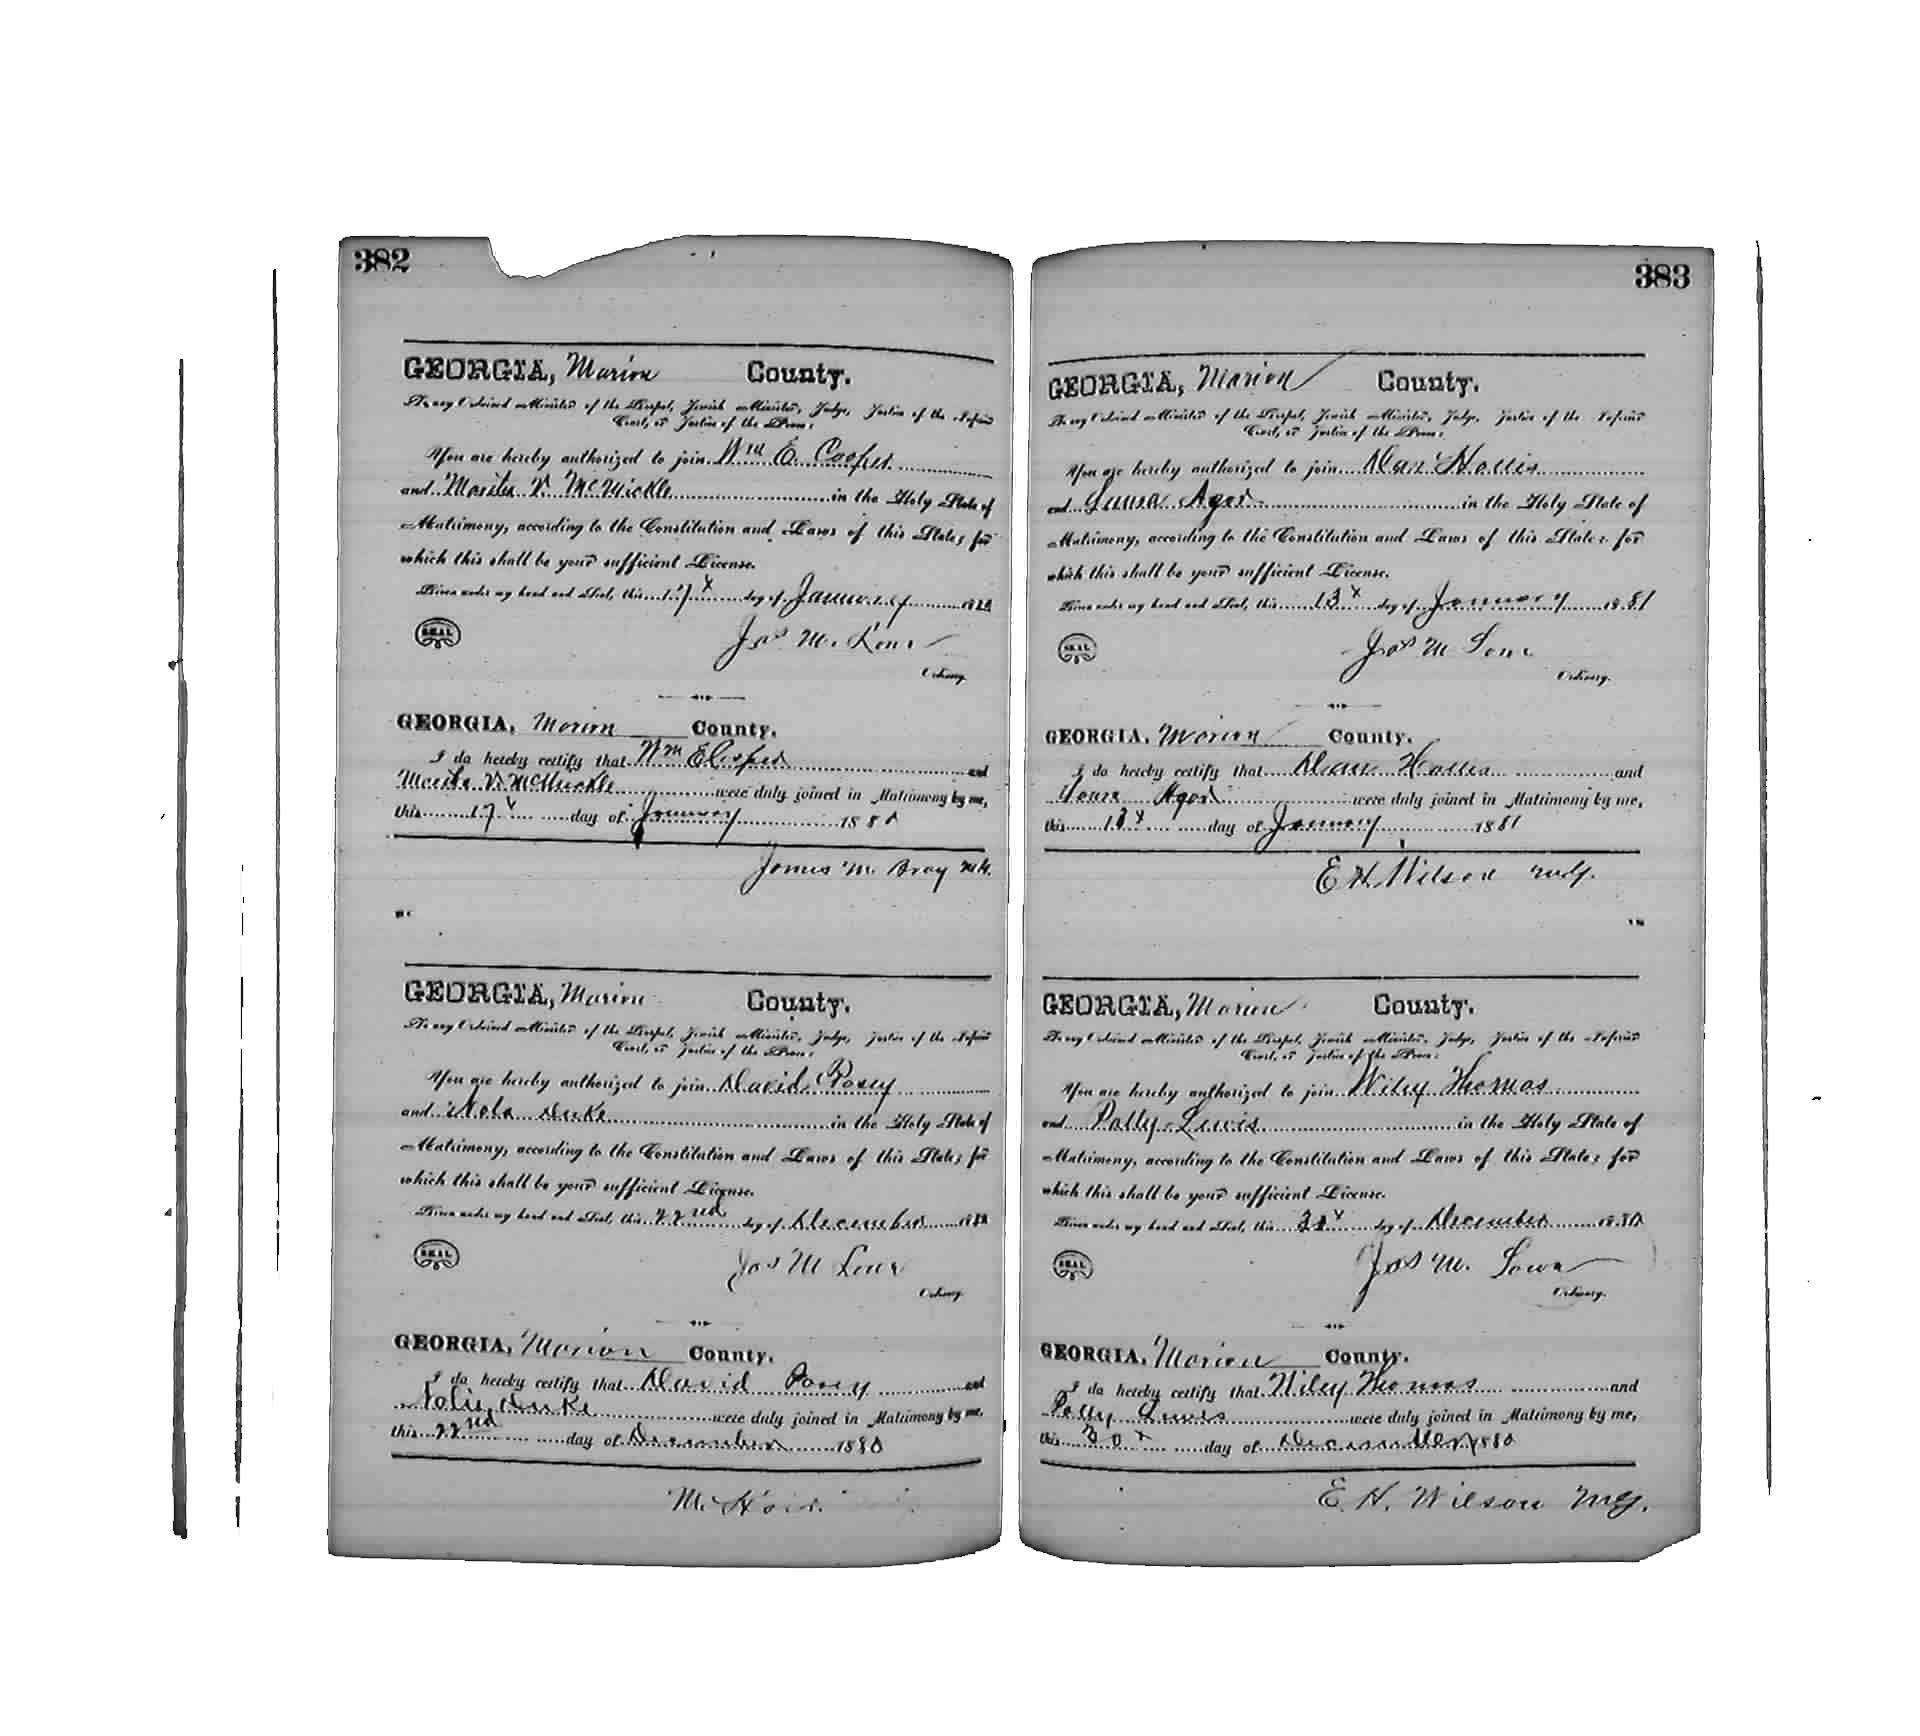 382
GEORGIA, Marion County.
To any Ordained Minister of the Gospel, Jewish Minister, Judge, Justice of the Inferior
Court, or Justice of the Peace:
You are hereby authorized to join Wm E. Cooper
and V. McMickle in the Holy State of
Matrimony, according to the Constitution and Laws of this State; for
which this shall be your sufficient License.
Given under my hand and Seal, this 17 day of January
Jos M. Lowe
SEAL
Ordinary.
GEORGIA, Marion County.
I do hereby certify that Wm E Cooper and
V. McMickle were duly joined in Matrimony by me,
this 17 day of January 1880
James M. Bray
GEORGIA, Marion County.
To any Ordained Minister of the Gospel, Jewish Minister, Judge, Justice of the Inferior
Court, or Justice of the Peace:
You are hereby authorized to join David Posey
and Duke in the Holy State of
Matrimony, according to the Constitution and Laws of this State; for
which this shall be your sufficient License.
Given under my hand and Seal, this 22nd day of December
Jos M Lowe
SEAL
Ordinary.
GEORGIA, Marion County.
I do hereby certify that David Posey and
Duke were duly joined in Matrimony by me,
this 22nd day of December 1880
383
GEORGIA, Marion County.
To any Ordained Minister of the Gospel, Jewish Minister, Judge, Justice of the Inferior
Court, or Justice of the Peace:
You are hereby authorized to join Dan Hollis
and in the Holy State of
Matrimony, according to the Constitution and Laws of this State; for
which this shall be your sufficient License.
Given under my hand and Seal, this 13 day of January 1881
Jos M Lowe
SEAL
Ordinary.
GEORGIA, Marion County.
I do hereby certify that Dan Hollis and
were duly joined in Matrimony by me,
this 13 day of January 1881
E H. Wilson
GEORGIA, Marion County.
To any Ordained Minister of the Gospel, Jewish Minister, Judge, Justice of the Inferior
Court, or Justice of the Peace:
You are hereby authorized to join Wiley Thomas
and Polly Lewis in the Holy State of
Matrimony, according to the Constitution and Laws of this State; for
which this shall be your sufficient License.
Given under my hand and Seal, this day of December 1880
Jos M. Lowe
SEAL
Ordinary.
GEORGIA, Marion County.
I do hereby certify that Wiley Thomas and
Polly Lewis were duly joined in Matrimony by me,
this 30 day of December 1880
E. H. Wilson